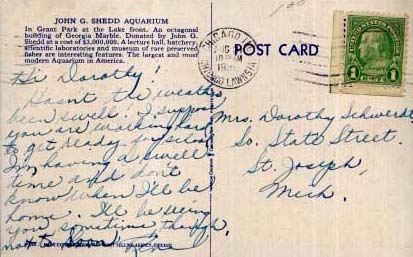 JOHN G. SHEDD AQUARIUM
In Grant Park at the Lake front. An octagonal
building of Georgia Marble. Donated by John G.
Shedd at a cost of $3,000,000. A lecture hall, hatchery,
scientific laboratories and museum of rare preserved
fishes are interesting features. The largest and most
modern Aquarium in America.
POST CARD
CHICAGO
CHICAGO LAWN STA
1 1
Hi Dorothy!
Hasn't the weather
been swell. I suppose
you are working hard
to get ready for school
I'm having a swell
time and don't
know when I'll be
home. I'll be seeing
you sometime though,
not soon
Mrs. Dorothy Schwerdt
So. State Street.
St. Joseph,
Mich.